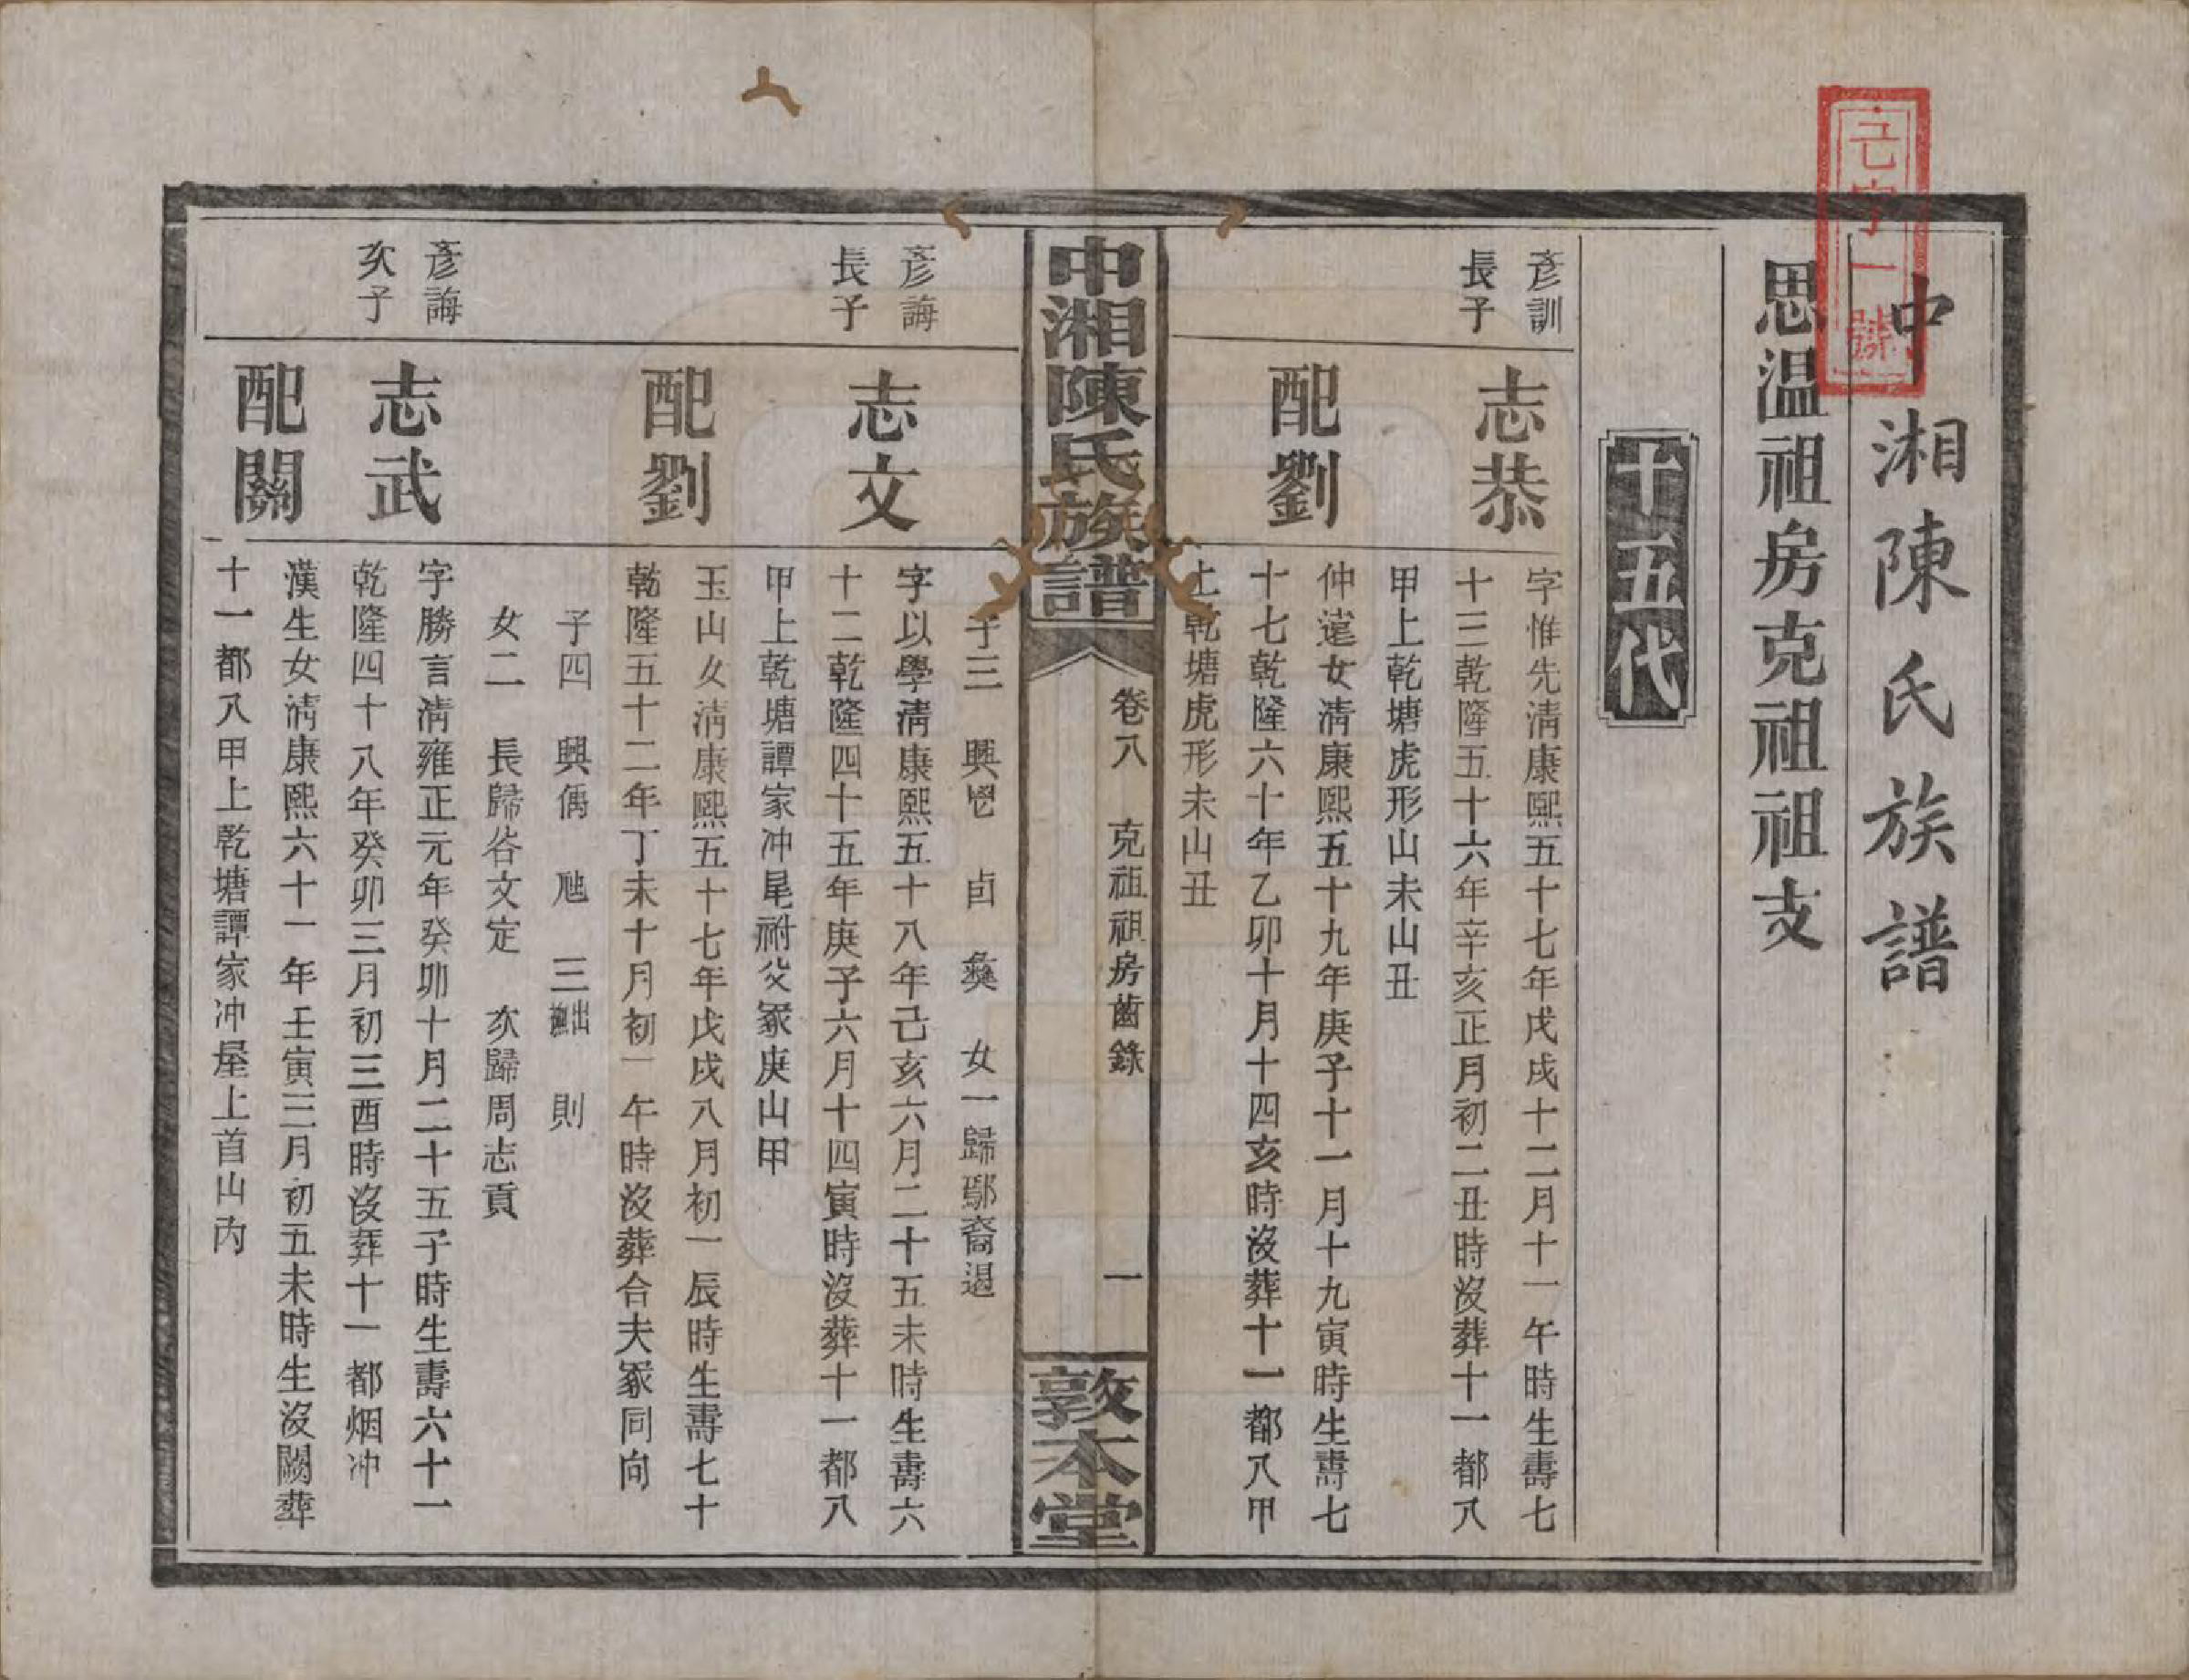 中湘陳氏族譜
思温祖房克祖祖支
十五代
彥訓
長子
志恭
字惟先淸康熙五十七年戊戌十二月十一午時生壽七
十三乾隆五十六年辛亥正月初二丑時沒葬十一都八
甲上乾塘虎形山未山丑
配劉
仲遠女淸康熙五十九年庚子十一月十九寅時生壽七
十七乾隆六十年乙卯十月十四亥時沒葬十一都八甲
上乾塘虎形未山丑
中湘陳氏族譜
卷八 克祖祖房齒錄
一
敦本堂
子三 興鬯 卣 彝 女一歸鄢裔過
彥誨
長子
志文
字以學淸康熙五十八年己亥六月二十五未時生壽六
十二乾隆四十五年庚子六月十四寅時沒葬十一都八
甲上乾塘譚家冲屋祔父冢庚山甲
配劉
玉山女淸康熙五十七年戊戌八月初一辰時生壽七十
乾隆五十二年丁未十月初一午時沒葬合夫冢同向
子四 興偶 虺 三 出撫 則
女二 長歸谷文定 次歸周志貢
彥誨
次子
志武
字勝言淸雍正元年癸卯十月二十五子時生壽六十一
乾隆四十八年癸卯三月初三酉時沒葬十一都烟冲
配關
漢生女淸康熙六十一年壬寅三月初五未時生沒闕葬
十一都八甲上乾塘譚家冲屋上首山內
字一號